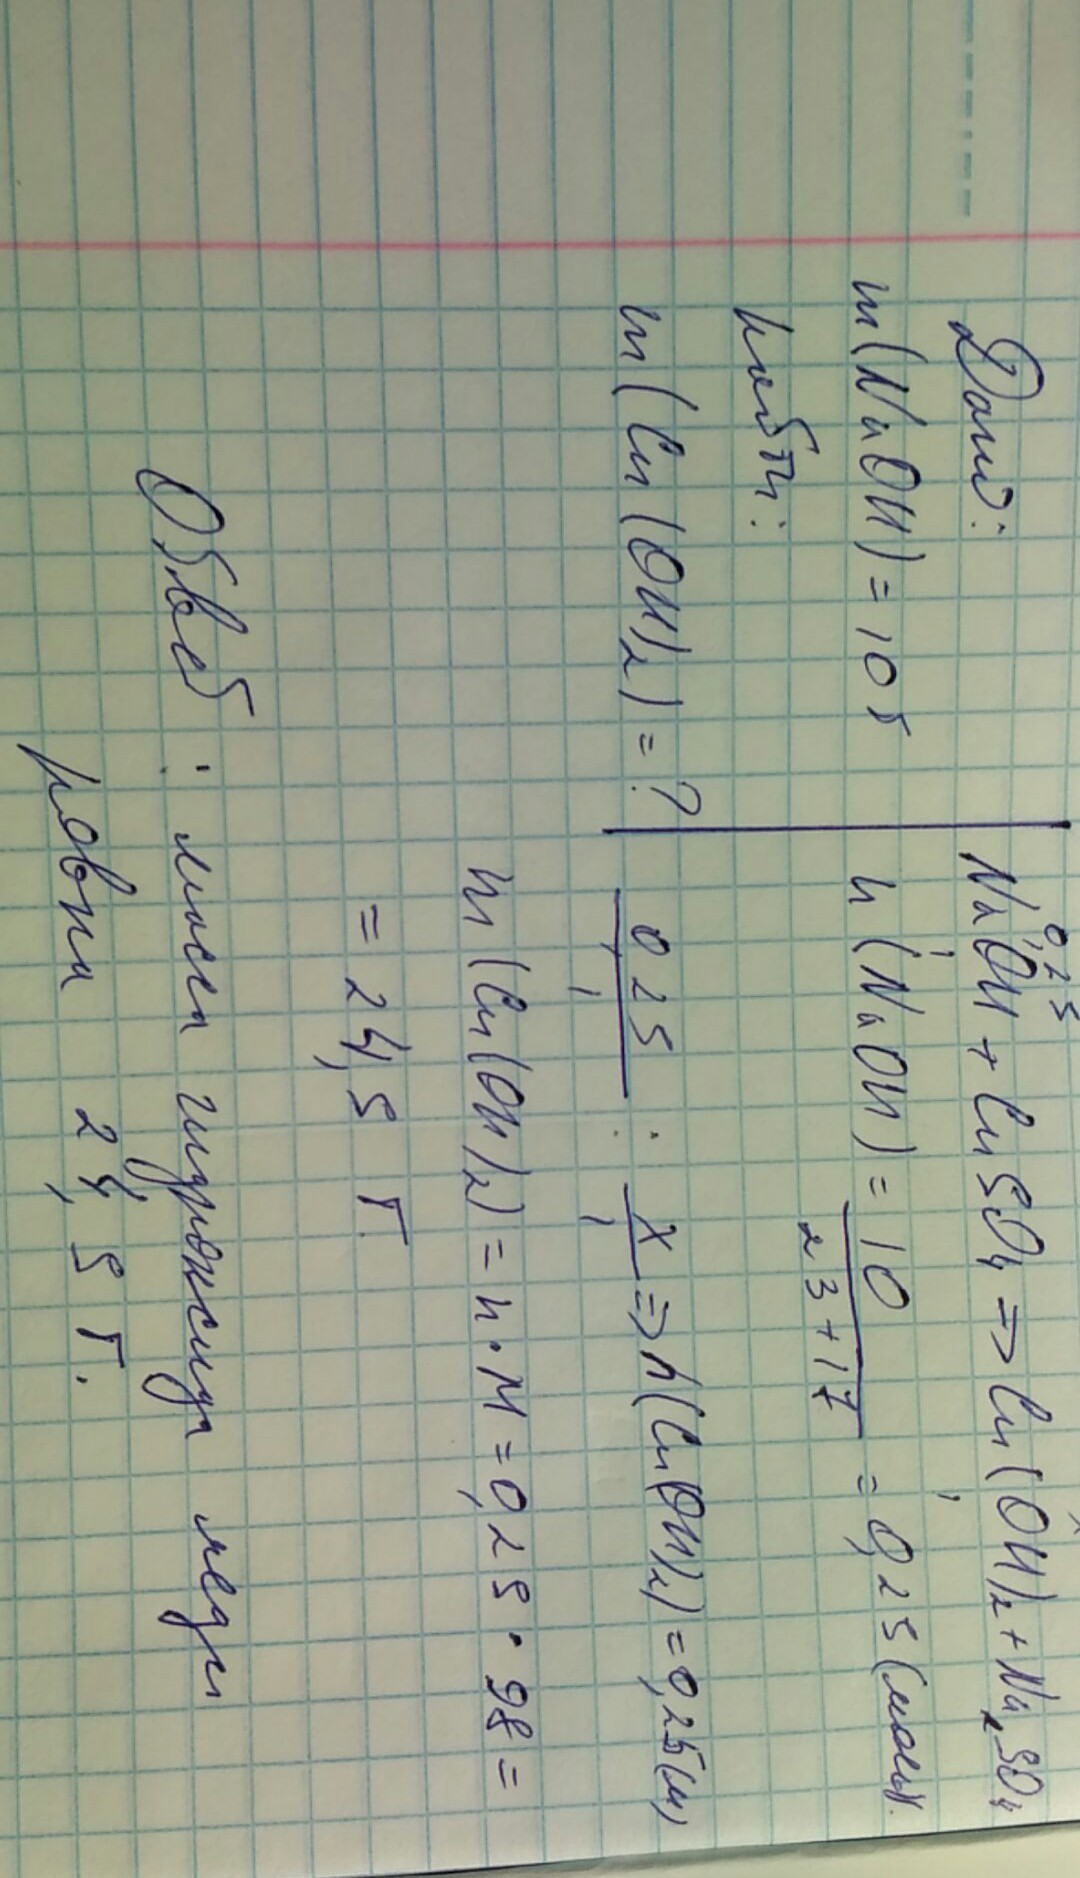 Дано:
m(NaOH)=10г
Найти:
m(Cu(OH)2)=?
0,25
x
NaOH + CuSO4 => Cu(OH)2 + Na2SO4
1
1
n(NaOH) = 10/23+17 = 0,25 (моль)
0,25/1 : x/1 => n(Cu(OH)2) = 0,25 (м)
m(Cu(OH)2) = n·M = 0,25·98 =
= 24,5 г
Ответ: масса гидроксида меди
равна 24,5 г.